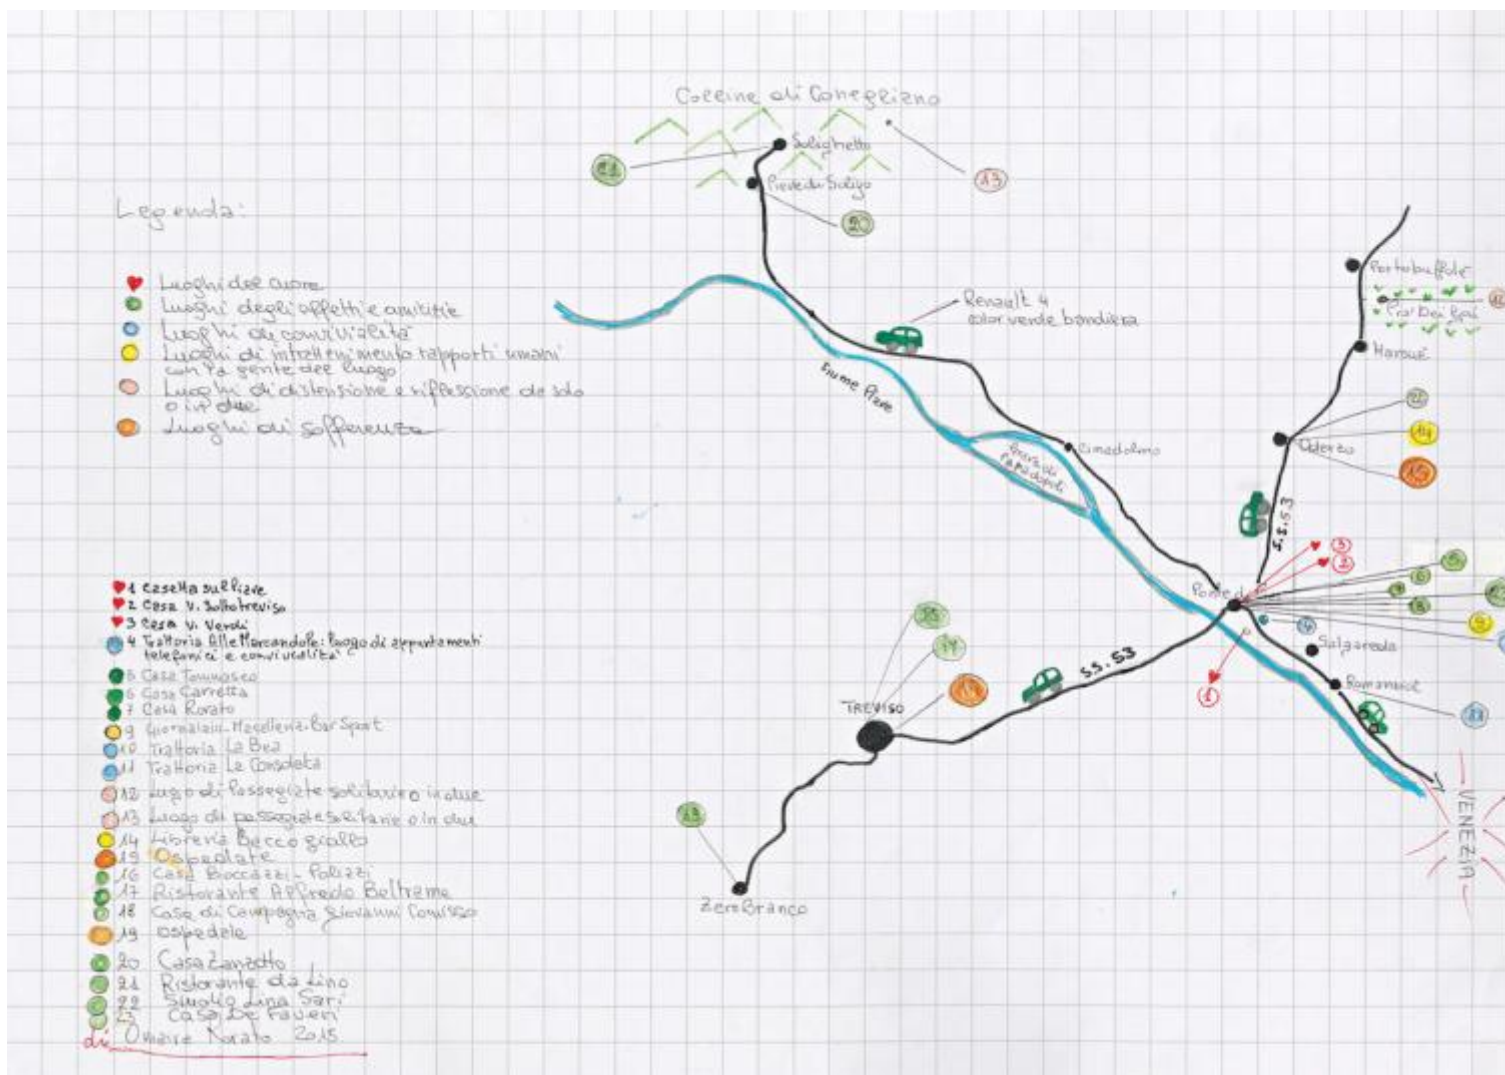 Colline di Conegliano
Solighetto
21
13
Pieve di Soligo
20
Legenda:
Luoghi del cuore
Luoghi degli affetti e amicizie
Luoghi di convivialità
Luoghi di intrattenimento rapporti umani
con la gente del luogo
Luoghi di distensione e riflessione da solo
o in due
Luoghi di sofferenza
Renault 4
color verde bandiera
Portobuffolè
Prà dei Gai
Mansuè
Fiume Piave
Cimadolmo
Grave di
Papadopoli
Oderzo
14
15
S.S. 53
3
2
5
6
7
8
9
Ponte di
4
Salgareda
1
Romanziol
11
S.S. 53
17
19
TREVISO
VENEZIA
Zero Branco
1 Casetta sul Piave
2 Casa V. Sottotreviso
3 Casa V. Verdi
4 Trattoria Alle Marcandole: luogo di appuntamenti
telefonici e convivialità
5 Casa Tommaseo
6 Casa Carretta
7 Casa Rorato
9 Giornalaio. Macelleria. Bar Sport
10 Trattoria La Bea
11 Trattoria La Consolata
12 Lugo di Passegiate solitarie o in due
13 Luogo di passegiate solitarie o in due
14 Libreria Becco giallo
15 Ospedale
16 Casa Boccazzi - Polizzi
17 Ristorante Alfredo Beltrame
18 Casa di Campagna Giovanni Comisso
19 Ospedale
20 Casa Zanzotto
21 Ristorante da Lino
22 Studio Lina Sari
23 Casa De Faveri
di Rorato 2015